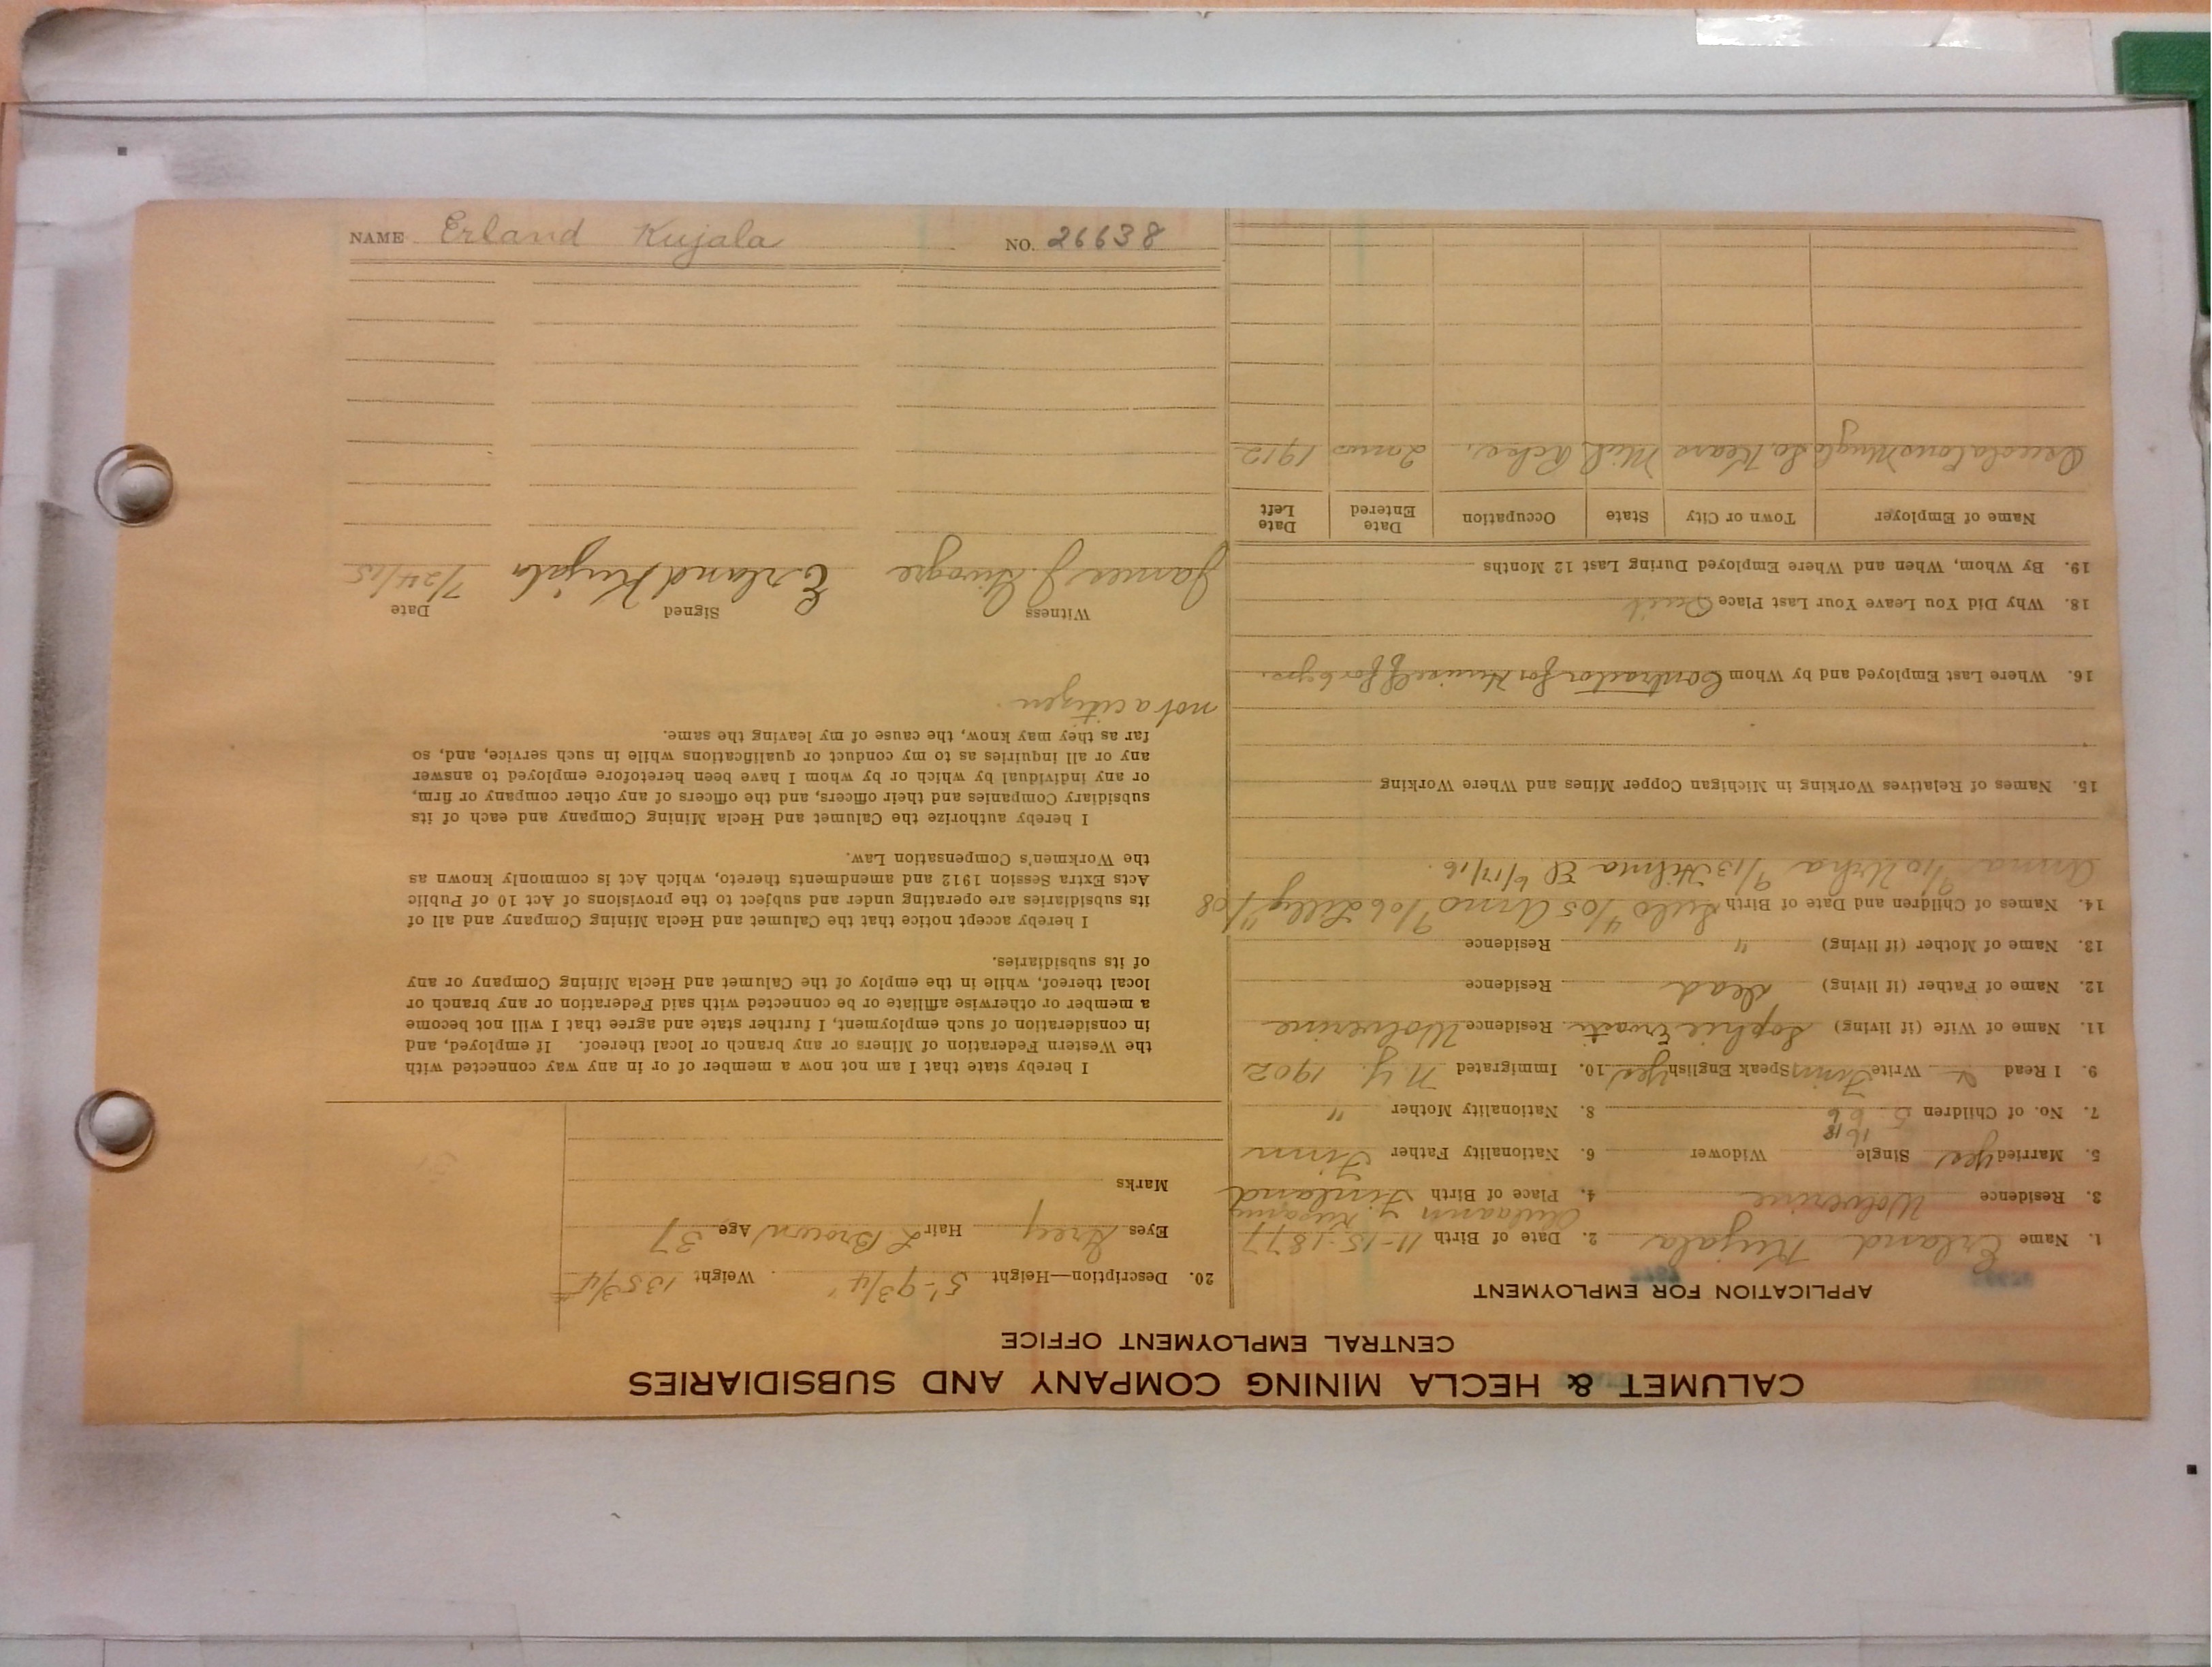 CALUMET & HECLA MINING COMPANY AND SUBSIDIARIES
CENTRAL EMPLOYMENT OFFICE
APPLICATION FOR EMPLOYMENT
1. Name Erland Kujala 2. Date of Birth 11-15-1877
3. Residence Wolverine 4. Place of Birth Finland
5. Married Yes Single Widower 6. Nationality Father Finn
16 18
7. No. of Children 5 6 6 8. Nationality Mother "
9. I Read & Write Finn Speak English Yes 10. Immigrated N.Y. 1902
11. Name of Wife (if living) Sophie Residence Wolverine
12. Name of Father (if living) Dead Residence
13. Name of Mother (if living) " Residence
14. Names of Children and Date of Birth 4/05 Arno 9/06 Lilly 11/08
9/10 9/13 Hilma El 6/17/16.
15. Names of Relatives Working in Michigan Copper Mines and Where Working
16. Where Last Employed and by Whom Contractor for Himself for 6 yrs.
18. Why Did You Leave Your Last Place Quit
19. By Whom, When and Where Employed During Last 12 Months
Name of Employer Town or City State Occupation Date Entered Date Left
Osceola Cons So. Kears Mich 2 mos 1912
20. Description—Height 5'-9 3/4" Weight 135 3/4#
Eyes Grey Hair L Brown Age 37
Marks
I hereby state that I am not now a member of or in any way connected with
the Western Federation of Miners or any branch or local thereof. If employed, and
in consideration of such employment, I further state and agree that I will not become
a member or otherwise affiliate or be connected with said Federation or any branch or
local thereof, while in the employ of the Calumet and Hecla Mining Company or any
of its subsidiaries.
I hereby accept notice that the Calumet and Hecla Mining Company and all of
its subsidiaries are operating under and subject to the provisions of Act 10 of Public
Acts Extra Session 1912 and amendments thereto, which Act is commonly known as
the Workmen's Compensation Law.
I hereby authorize the Calumet and Hecla Mining Company and each of its
subsidiary Companies and their officers, and the officers of any other company or firm,
or any individual by which or by whom I have been heretofore employed to answer
any or all inquiries as to my conduct or qualifications while in such service, and, so
far as they may know, the cause of my leaving the same.
not a citizen.
Witness Signed Date
James J. Erland Kujala 7/24/15
NAME Erland Kujala NO. 26638